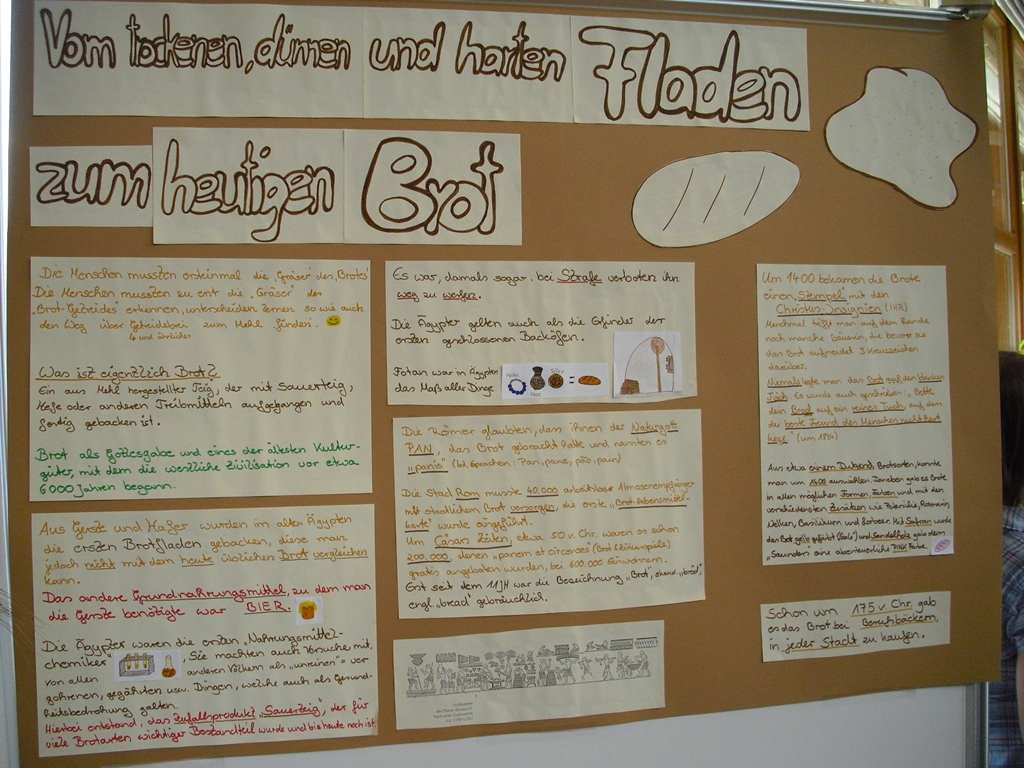 Vom trockenen, dünnen und harten Fladen
zum heutigen Brot
Die Menschen mussten ersteinmal die „Gräser" des „Brotes"
Die Menschen mussten zu erst die „Gräser" des
„Brot-Getreides" erkennen, unterscheiden lernen so wie auch
den Weg über Getreidebrei zum Mehl „finden".
↳ und ähnliches
Was ist eigentlich Brot?
Ein aus Mehl hergestellter Teig, der mit Sauerteig,
Hefe oder anderen Treibmitteln aufgegangen und
fertig gebacken ist.
Brot als Gottesgabe und eines der ältesten Kultur-
güter, mit dem die westliche Zivilisation vor etwa
6000 Jahren begann.
Aus Gerste und Hafer wurden im alten Ägypten
die ersten Brotfladen gebacken, diese man
jedoch nicht mit dem heute üblichen Brot vergleichen
kann.
Das andere Grundnahrungsmittel, zu dem man
die Gerste benötigte war BIER.
Die Ägypter waren die ersten „Nahrungsmittel-
chemiker". Sie machten auch Versuche mit,
von allen anderen Völkern als „unreinen" = ver
gohrenen, gegährten usw. Dingen, welche auch als Gesund-
heitsbedrohung galten.
Hierbei entstand, das Zufallsprodukt „Sauerteig", der für
viele Brotarten wichtiger Bestandteil wurde und bis heute noch ist.
Es war, damals sogar, bei Strafe verboten ihn
weg zu werfen.
Die Ägypter gelten auch als die Erfinder der
ersten geschlossenen Backöfen.
Fotan war in Ägypten
das Maß aller Dinge
Kette
Vase
Bier
Die Römer glaubten, dass ihnen der Naturgott
PAN, das Brot gebracht hatte und nannten es
„panis" (td. Sprachen: Pan, pane, pão, pain)
Die Stad Rom musste 40.000 arbeitslose Almosenempfänger
mit staatlichem Brot versorgen, die erste „Brot-Lebensmittel-
karte" wurde eingeführt.
Um Cäsars Zeiten, etwa 50 v. Chr. waren es schon
200.000, denen „panem et circenses (Brot & Zirkusspiele)
gratis angeboten wurden, bei 600.000 Einwohnern.
Erst seit dem 11 JH war die Bezeichnung „Brot", skand. „bröd",
engl. „bread" gebräuchlich.
Um 1400 bekamen die Brote
einen „Stempel" mit den
Christus-Insignien (IHR)
Manchmal trifft man auf dem Lande
noch manche Bäuerin, die bevor sie
das Brot aufschneidet 3 Kreuzzeichen
darüber.
Niemals legte man das Brot auf den blanken
Tisch. Es wurde auch geschrieben: „Bette
dein Brod auf ein reines Tuch, auf dass
der beste Freund des Menschen nicht hart
liege" (um 1814)
Aus etwa einem Dutzend Brotsorten, konnte
man um 1400 auswählen. Daneben gab es Brote
in allen möglichen Formen, Farben und mit den
verschiedensten Zutaten wie Petersilie, Rosmarin,
Nelken, Basilikum und Lorbeer. Mit Safran wurde
das Brot gelb gefärbt und Sandelholz gab dem
„Saunders" eine abenteuerliche Pink Farbe.
Schon um 175 v. Chr. gab
es das Brot bei Berufsbäckern,
in jeder Stadt zu kaufen.